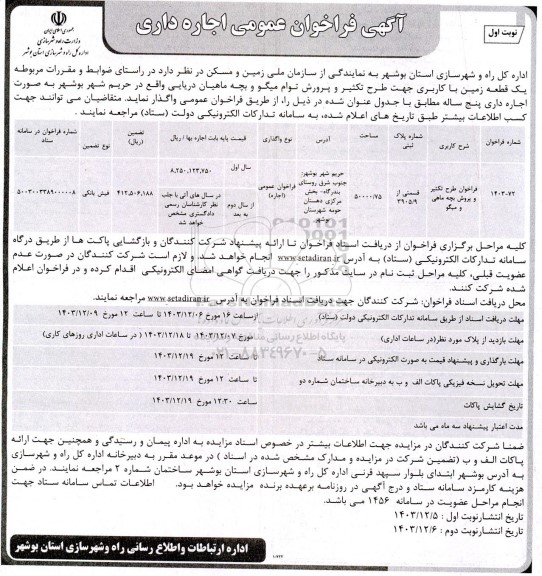 نوبت اول
آگهی فراخوان عمومی اجاره داری
جمهوری اسلامی ایران
وزارت راه و شهرسازی
اداره کل راه و شهرسازی استان بوشهر
اداره کل راه و شهرسازی استان بوشهر به نمایندگی از سازمان ملی زمین و مسکن در نظر دارد در راستای ضوابط و مقررات مربوطه
یک قطعه زمین با کاربری جهت طرح تکثیر و پرورش توام میگو و بچه ماهیان دریایی واقع در حریم شهر بوشهر به صورت
اجاره داری پنج ساله مطابق با جدول عنوان شده در ذیل را، از طریق فراخوان عمومی واگذار نماید. متقاضیان می توانند جهت
کسب اطلاعات بیشتر طبق تاریخ های اعلام شده، به سامانه تدارکات الکترونیکی دولت (ستاد) مراجعه نمایند .
شماره فراخوان
شرح کاربری
شماره پلاک ثبتی
مساحت
آدرس
نوع واگذاری
قیمت پایه بابت اجاره بها / ریال
تضمین (ریال)
نوع تضمین
شماره فراخوان در سامانه ستاد
۱۴۰۳-۷۲
فراخوان طرح تکثیر و پروش بچه ماهی و میگو
قسمتی از ۳۹۰۵/۹
۵۰۰۰۰/۷۵
حریم شهر بوشهر: جنوب شرق روستای بندرگاه- بخش مرکزی دهستان حومه شهرستان بوشهر
فراخوان عمومی (اجاره)
سال اول
۸,۲۵۰,۱۲۳,۷۵۰
از سال دوم به بعد
در سال های آتی با جلب نظر کارشناسان رسمی دادگستری مشخص خواهد شد
۴۱۲,۵۰۶,۱۸۸
فیش بانکی
۵۰۰۳۰۰۳۳۸۹۰۰۰۰۰۸
کلیه مراحل برگزاری فراخوان از دریافت اسناد فراخوان تا ارائه پیشنهاد شرکت کنندگان و بازگشایی پاکت ها از طریق درگاه
سامانه تدارکات الکترونیکی (ستاد) به آدرس www.setadiran.ir انجام خواهد شد و لازم است شرکت کنندگان در صورت عدم
عضویت قبلی، کلیه مراحل ثبت نام در سایت مذکور را جهت دریافت گواهی امضای الکترونیکی اقدام کرده و در فراخوان اعلام
شده شرکت کنند.
محل دریافت اسناد فراخوان: شرکت کنندگان جهت دریافت اسناد فراخوان به آدرس www.setadiran.ir مراجعه نمایند.
مهلت دریافت اسناد از طریق سامانه تدارکات الکترونیکی دولت (ستاد) از ساعت ۱۶ مورخ ۱۴۰۳/۱۲/۰۶ تا ساعت ۱۲ مورخ ۱۴۰۳/۱۲/۰۹
مهلت بازدید از پلاک مورد نظر(در ساعات اداری) مورخ ۱۴۰۳/۱۲/۰۷ تا ۱۴۰۳/۱۲/۱۸ ( در ساعات اداری روزهای کاری)
مهلت بارگذاری و پیشنهاد قیمت به صورت الکترونیکی در سامانه ستاد تا ساعت ۱۲ مورخ ۱۴۰۳/۱۲/۱۹
مهلت تحویل نسخه فیزیکی پاکات الف و ب به دبیرخانه ساختمان شماره دو تا ساعت ۱۲ مورخ ۱۴۰۳/۱۲/۱۹
تاریخ گشایش پاکات ساعت ۱۲:۳۰ مورخ ۱۴۰۳/۱۲/۱۹
مدت اعتبار پیشنهاد سه ماه می باشد
ضمنا شرکت کنندگان در مزایده جهت اطلاعات بیشتر در خصوص اسناد مزایده به اداره پیمان و رسیدگی و همچنین جهت ارائه
پاکات الف و ب (تضمین شرکت در مزایده و مدارک مشخص شده در اسناد ) در موعد مقرر به دبیرخانه اداره کل راه و شهرسازی
به آدرس بوشهر ابتدای بلوار سپهبد قرنی اداره کل راه و شهرسازی استان بوشهر ساختمان شماره ۲ مراجعه نمایند. در ضمن
هزینه کارمزد سامانه ستاد و درج آگهی در روزنامه برعهده برنده مزایده خواهد بود. اطلاعات تماس سامانه ستاد جهت
انجام مراحل عضویت در سامانه ۱۴۵۶ می باشد.
تاریخ انتشار نوبت اول : ۱۴۰۳/۱۲/۵
تاریخ انتشار نوبت دوم : ۱۴۰۳/۱۲/۶
اداره ارتباطات واطلاع رسانی راه وشهرسازی استان بوشهر